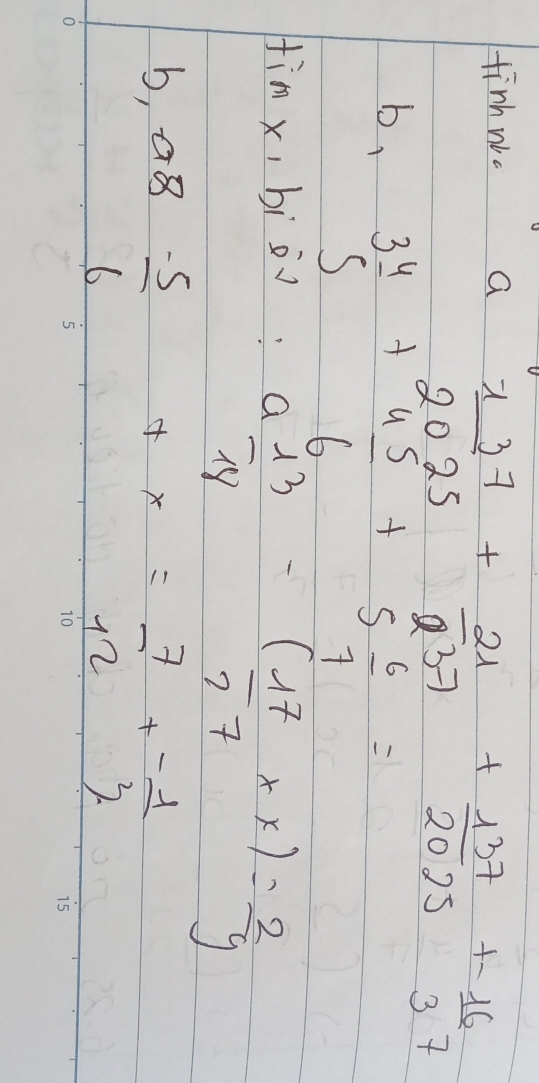 tính nhanh a -137/2025 + 21/37 + 137/2025 + -16/37
b, 3 4/5 + 4 5/6 + 5 6/7 =
tìm x, biết: a 13/14 - (17/27 + x) = 2/9
b, 08 -5/6 + x = 7/12 + -1/3
0 5 10 15